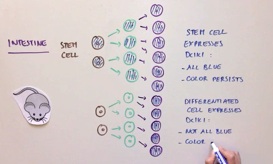 INTESTINE
STEM
CELL
STEM CELL
EXPRESSES
Dclk1:
- ALL BLUE
- COLOR PERSISTS
DIFFERENTIATED
CELL EXPRESSES
Dclk1:
- NOT ALL BLUE
- COLOR